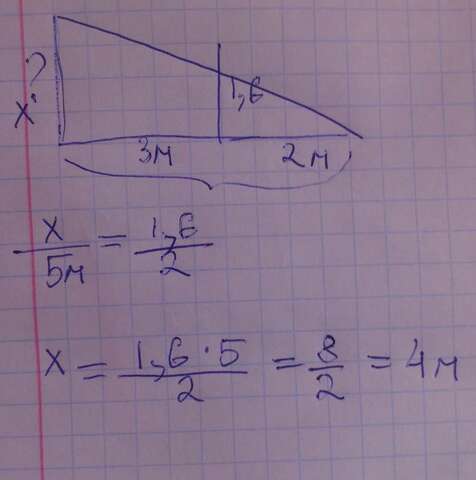 ?
x
1,6
3м
2м
x/5м = 1,6/2
x = 1,6·5/2 = 8/2 = 4м